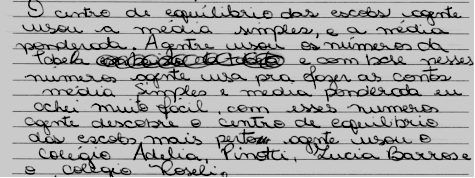 O centro de equilibrio das escolas agente
usou a média simples, e a média
ponderada. Agentre usou os numeros da
tabela e com base nesses
numeros agente usa pra efazer as contas
média simples e media ponderada eu
achei muito facil, com esses numeros
agente descobre o centro de equilibrio
das escolas mais perto agente usou o
colégio Adelia, Pinotti, Lucia Barros e
o colégio Roseli.